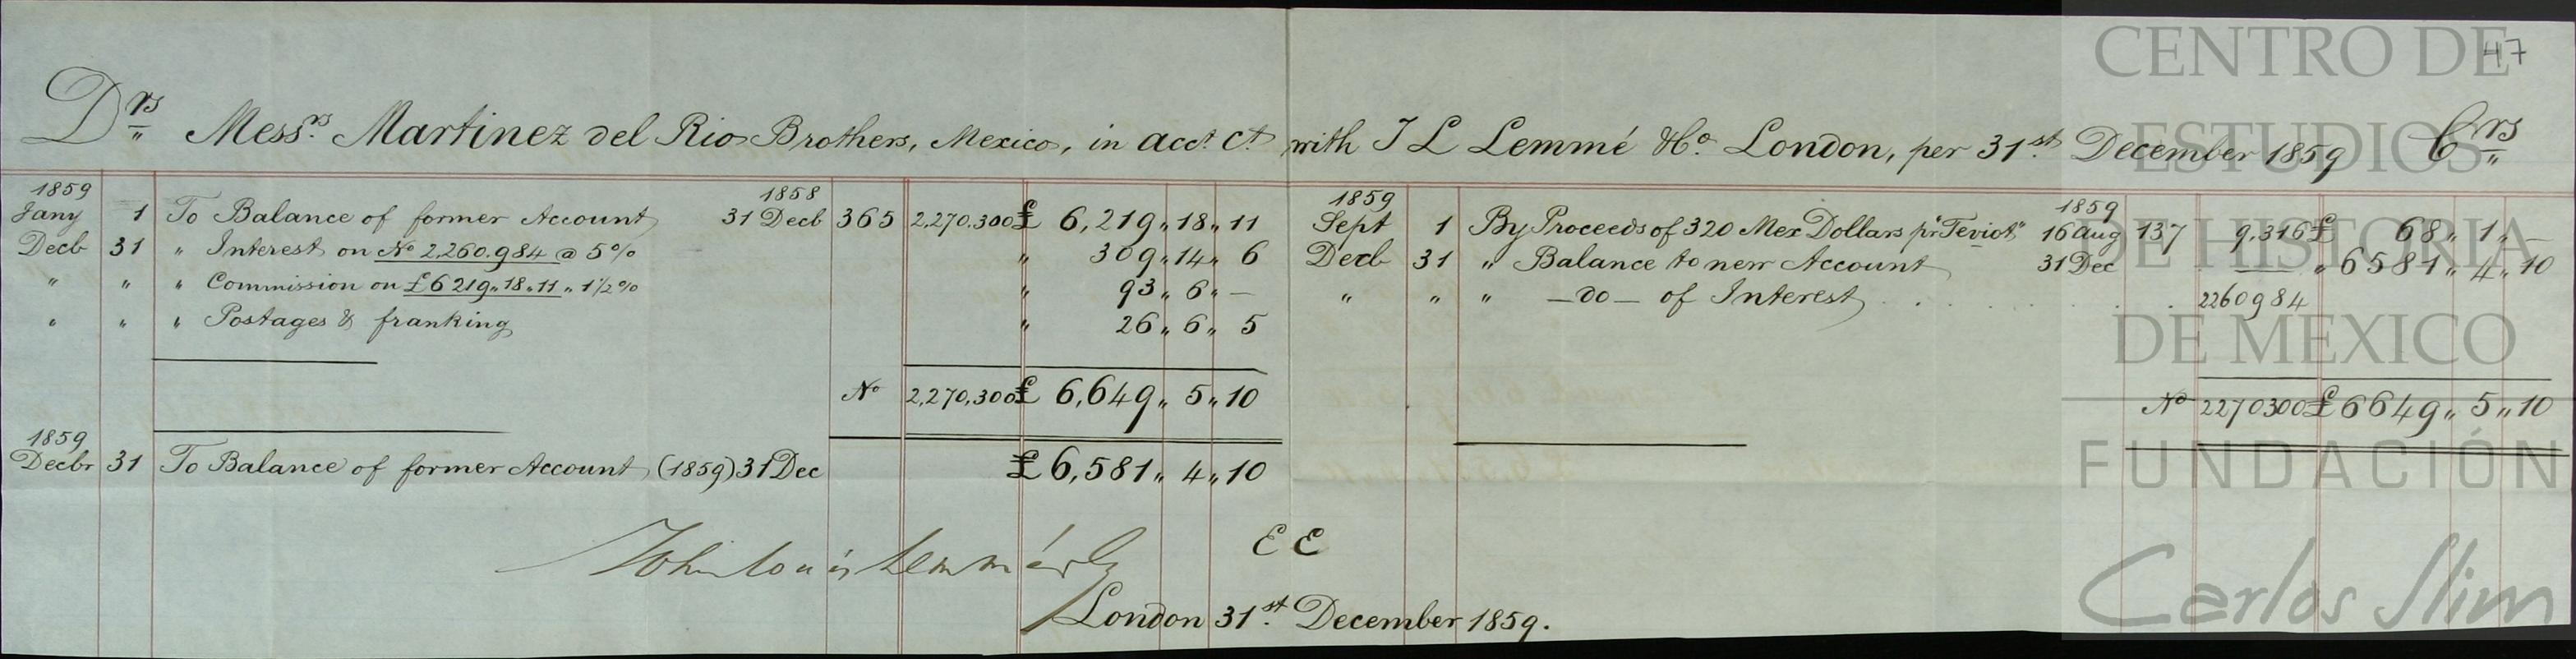 47
Drs Messrs Martinez del Rio Brothers, Mexico, in acct Ct with J L Lemmé & Co London, per 31st December 1859 Crs
1859 1858
Jany 1 To Balance of former Account 31 Decb 365 2,270.300 £ 6,219 " 18 " 11
Decb 31 " Interest on No 2,260.984 @ 5% " 309 " 14 " 6
" " " Commission on £6219 " 18 " 11 " 1 1/2 % " 93 " 6 " —
" " " Postages & franking " 26 " 6 " 5
No 2,270,300 £ 6,649 " 5 " 10
1859
Decbr 31 To Balance of former Account (1859) 31 Dec £ 6,581 " 4 " 10
1859 1859
Sept 1 By Proceeds of 320 Mex Dollars pr "Teviot" 16 Aug 137 9,316 £ 68 " 1 " —
Decb 31 " Balance to new Account 31 Dec — " 6581 " 4 " 10
" " " — do — of Interest . . . . . . 2260984
No 2270300 £ 6649 " 5 " 10
E E
John Louis Lemmé & Co
London 31st December 1859.
CENTRO DE
ESTUDIOS
DE HISTORIA
DE MEXICO
FUNDACIÓN
Carlos Slim